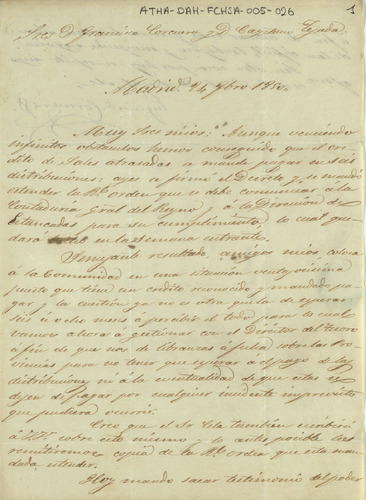 ATHA-DAH-FCHSA-005-026
1
Sres. D. Francisco Corcuera y D. Cayetano Tejada.
Madrid 24 7bro
Muy Sres mios: Aunque venciendo
infinitos obstaculos hemos conseguido que el cre-
dito de Sales atrasadas se mande pagar en seis
distribuciones: ayer se firmó el Decreto y se mandó
estender la Rl. orden que se debe comunicar á la
Contaduria Gral del Reyno y á la Direccion de
Estancadas para su cumplimiento, lo cual que-
dará en la semana entrante.
Semejante resultado, amigos mios, coloca
á la Comunidad en una situacion ventajosisima
puesto que tiene un credito reconocido y mandado pa-
gar y la cuestion ya no es otra que la de esperar
seis ú ocho meses á percibir el todo para lo cual
vamos ahora á gestionar con el Director del Tesoro
á fin de que nos de libranzas á sobre las Pro-
vincias para no tener que esperar al pago de las
distribuciones, ni á la eventualidad de que estas se
dejen de pagar por cualquier incidente imprevisto
que pudiera ocurrir.
Creo que el Sr. Cela tambien escribirá
á VV. sobre esto mismo y lo antes posible les
remitiremos copia de la Rl. orden que esta man-
dada estender.
Hoy mando sacar testimonio del poder